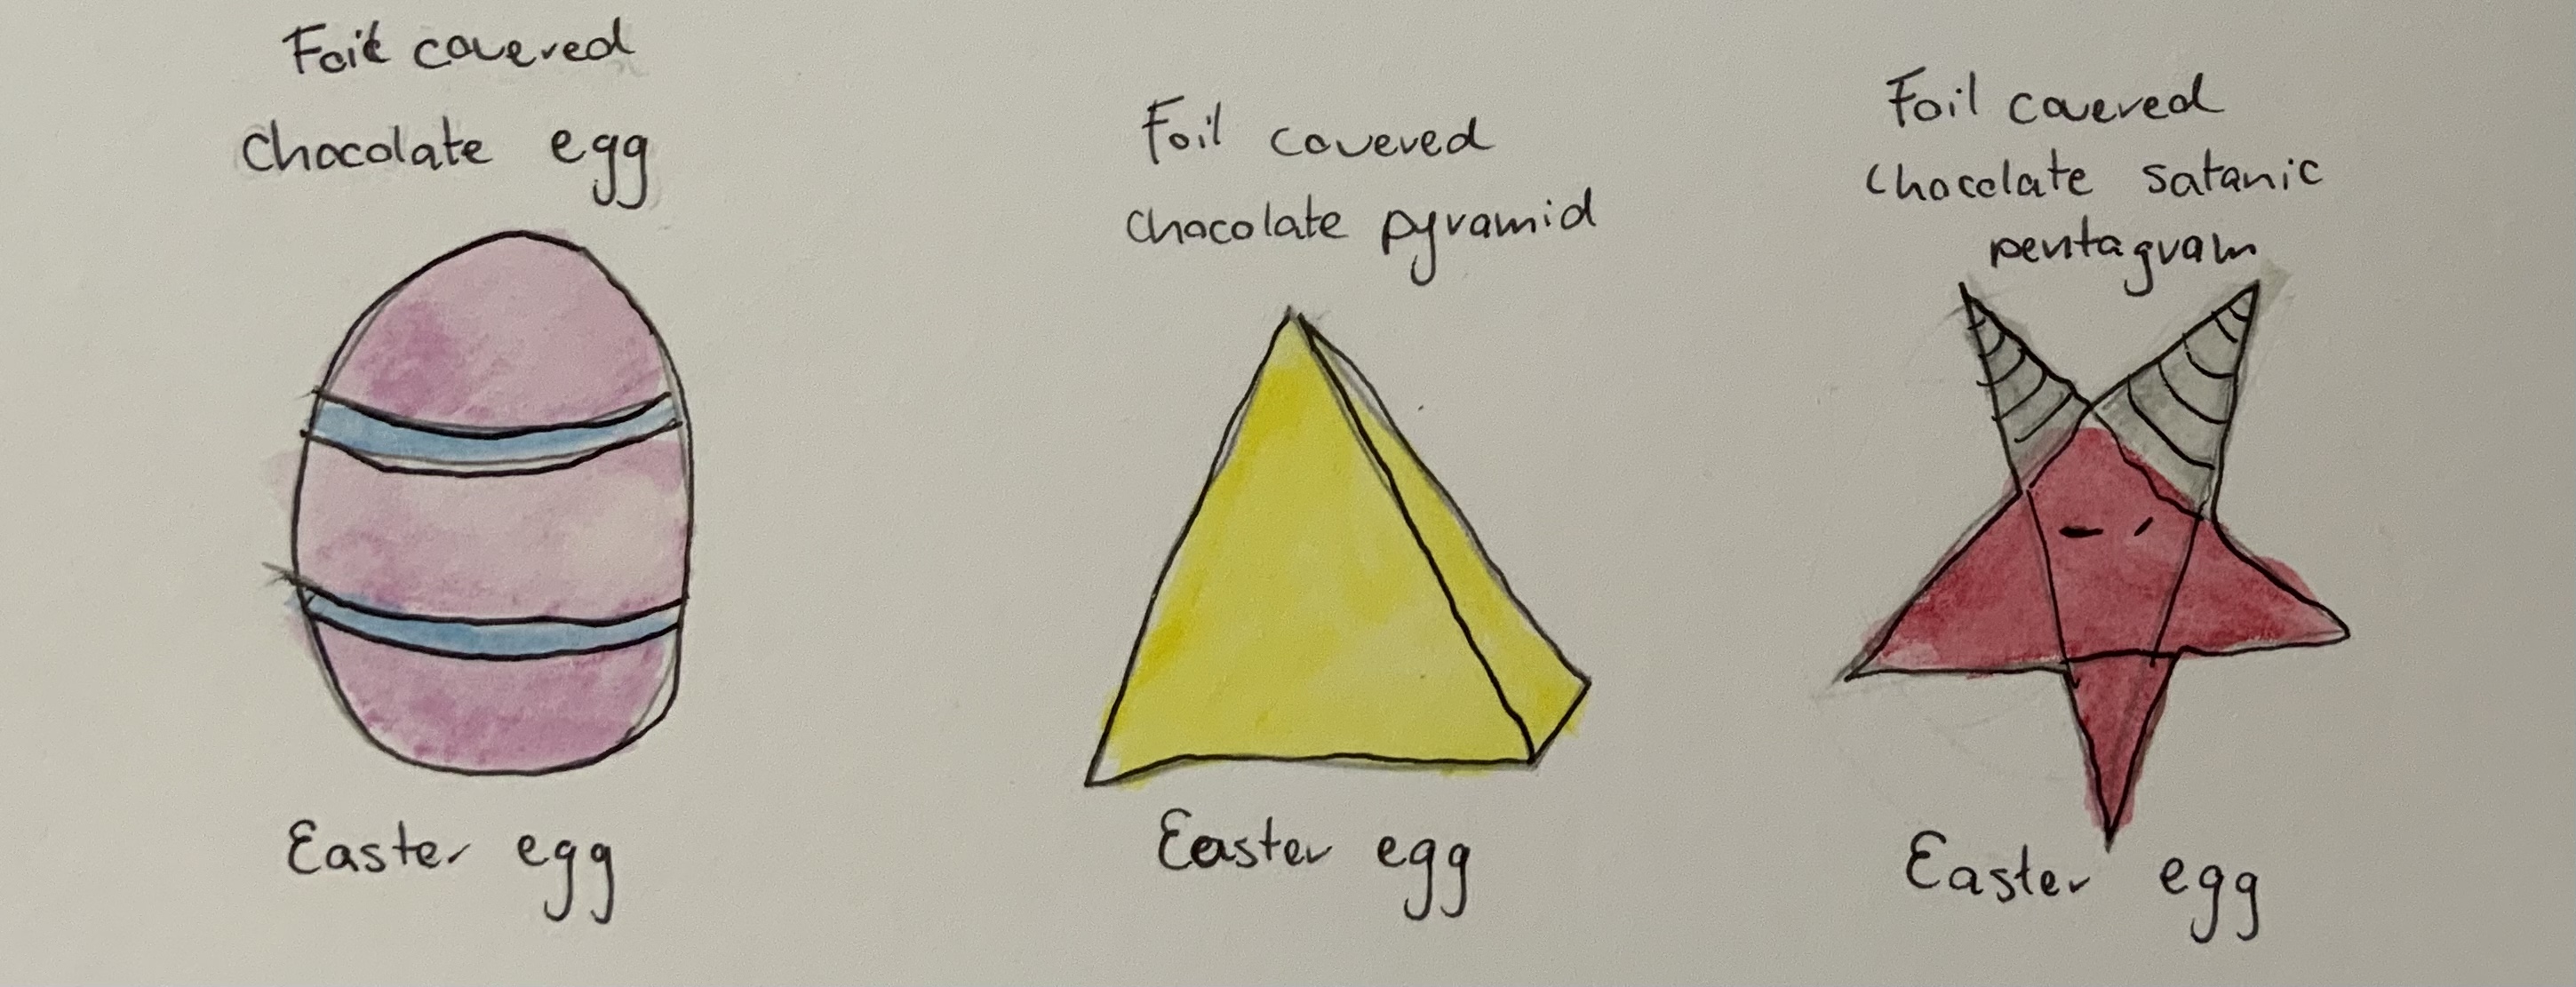 Foil covered
chocolate egg
Easter egg
Foil covered
chocolate pyramid
Easter egg
Foil covered
chocolate satanic
pentagram
Easter egg